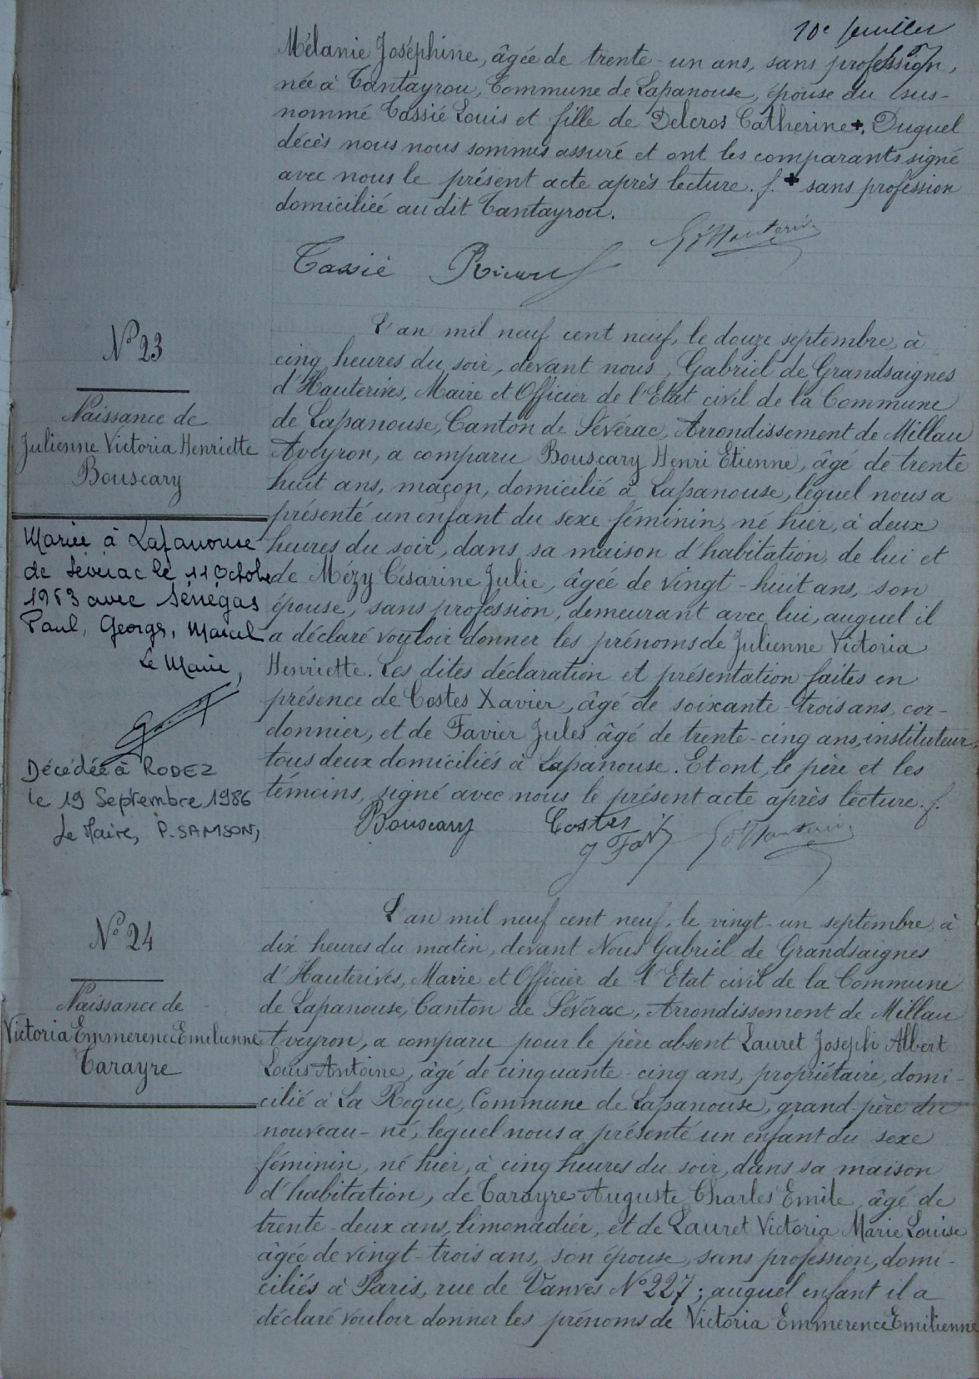 10e feuillet
Mélanie Joséphine, âgée de trente-un ans, sans profession,
née à Tantayrou, Commune de Lapanouse, épouse du sus-
nommé Cassié Louis et fille de Delcros Catherine +. Duquel
décès nous nous sommes assuré et ont les comparants signé
avec nous le présent acte après lecture. /. + sans profession
domiciliée au dit Tantayrou.
Cassié
N° 23
Naissance de
Julienne Victoria Henriette
Bouscary
Mariée à Lapanouse
de Séverac le 11 Octobre
1953 avec Sénégas
Paul, Georges, Marcel
Le Maire,
Décédée à RODEZ
le 19 Septembre 1986
Le Maire, P. SAMSON,
L'an mil neuf cent neuf, le douze septembre, à
cinq heures du soir, devant nous, Gabriel de Grandsaignes
d'Hauterives, Maire et Officier de l'Etat civil de la Commune
de Lapanouse, Canton de Sévérac, Arrondissement de Millau
Aveyron, a comparu Bouscary Henri Etienne, âgé de trente
huit ans, maçon, domicilié à Lapanouse, lequel nous a
présenté un enfant du sexe féminin, né hier, à deux
heures du soir, dans sa maison d'habitation, de lui et
de Mézy Césarine Julie, âgée de vingt-huit ans, son
épouse, sans profession, demeurant avec lui, auquel il
a déclaré vouloir donner les prénoms de Julienne Victoria
Henriette. Les dites déclaration et présentation faites en
présence de Costes Xavier, âgé de soixante-trois ans, cor-
donnier, et de Favier Jules âgé de trente-cinq ans, instituteur,
tous deux domiciliés à Lapanouse. Et ont, le père et les
témoins, signé avec nous le présent acte après lecture. /.
Bouscary Costes
N° 24
Naissance de
Victoria Emmerence Emilienne
Tarayre
L'an mil neuf cent neuf, le vingt-un septembre, à
dix heures du matin, devant Nous Gabriel de Grandsaignes
d'Hauterives, Maire et Officier de l'Etat civil de la Commune
de Lapanouse, Canton de Sévérac, Arrondissement de Millau
Aveyron, a comparu pour le père absent Lauret Joseph Albert
Louis Antoine, âgé de cinquante-cinq ans, propriétaire, domi-
cilié à La Roque, Commune de Lapanouse, grand-père du
nouveau-né, lequel nous a présenté un enfant du sexe
féminin, né hier, à cinq heures du soir, dans sa maison
d'habitation, de Tarayre Auguste Charles Emile, âgé de
trente-deux ans, limonadier, et de Lauret Victoria Marie Louise
âgée de vingt-trois ans, son épouse, sans profession, domi-
ciliés à Paris, rue de Vanves N° 227 ; auquel enfant il a
déclaré vouloir donner les prénoms de Victoria Emmerence Emilienne